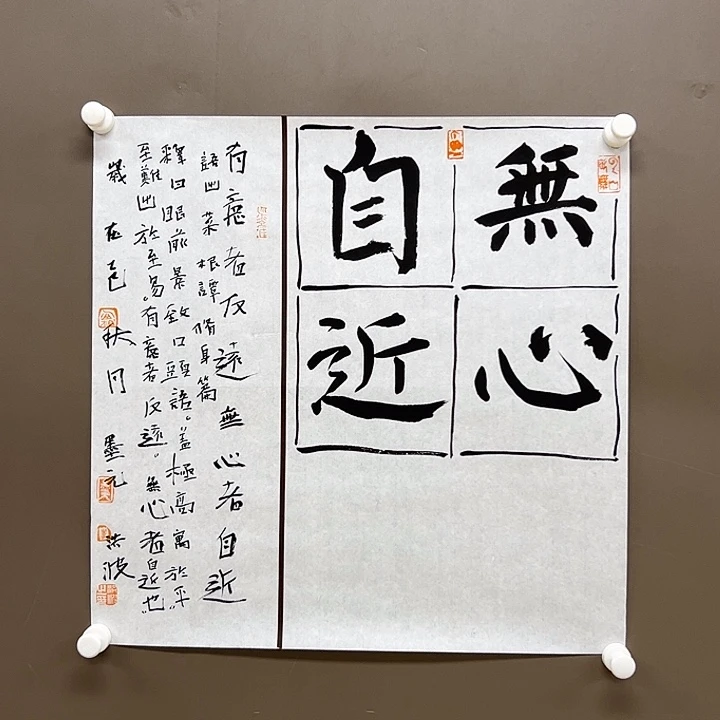 無心
自近
有意者反遠無心者自近
語出菜根譚脩身篇
釋曰眼前景致口頭語。蓋極高寓於平
至難出於至易。有意者反遠。無心者自近也
歲在乙巳秋月墨元洪波